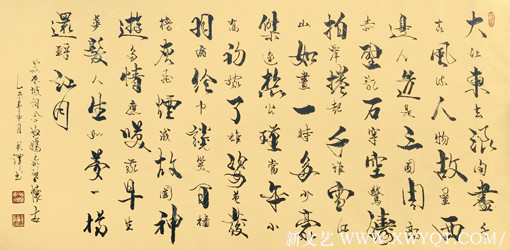 大江東去浪淘盡千
古風流人物故壘西
邊人道是三國周郎
赤壁亂石穿空驚濤
拍岸捲起千堆雪江
山如畫一時多少豪
傑遙想公瑾當年小
喬初嫁了雄姿英發
羽扇綸巾談笑間檣
櫓灰飛煙滅故國神
遊多情應笑我早生
華髮人生如夢一樽
還酹江月
蘇東坡詞念奴嬌赤壁懷古
乙未年月書
新文艺